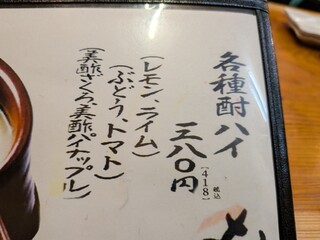 各種酎ハイ
三八〇円
税込
(418)
(レモン、ライム)
(ぶどう、トマト)
(美酢ざくろ、美酢パイナップル)